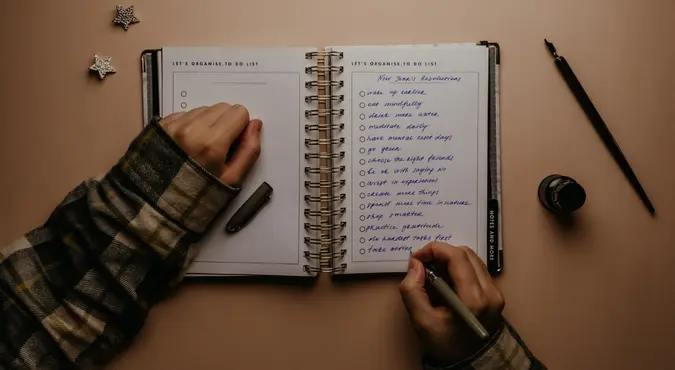 LET'S ORGANISE. TO DO LIST
LET'S ORGANISE. TO DO LIST
New Year's Resolutions
wake up earlier
eat mindfully
drink more water
meditate daily
have mental reset days
go green
choose the right friends
be ok with saying no
invest in experiences
create more things
spend more time in nature
shop smarter
practice gratitude
do hardest tasks first
take
NOTES AND MORE